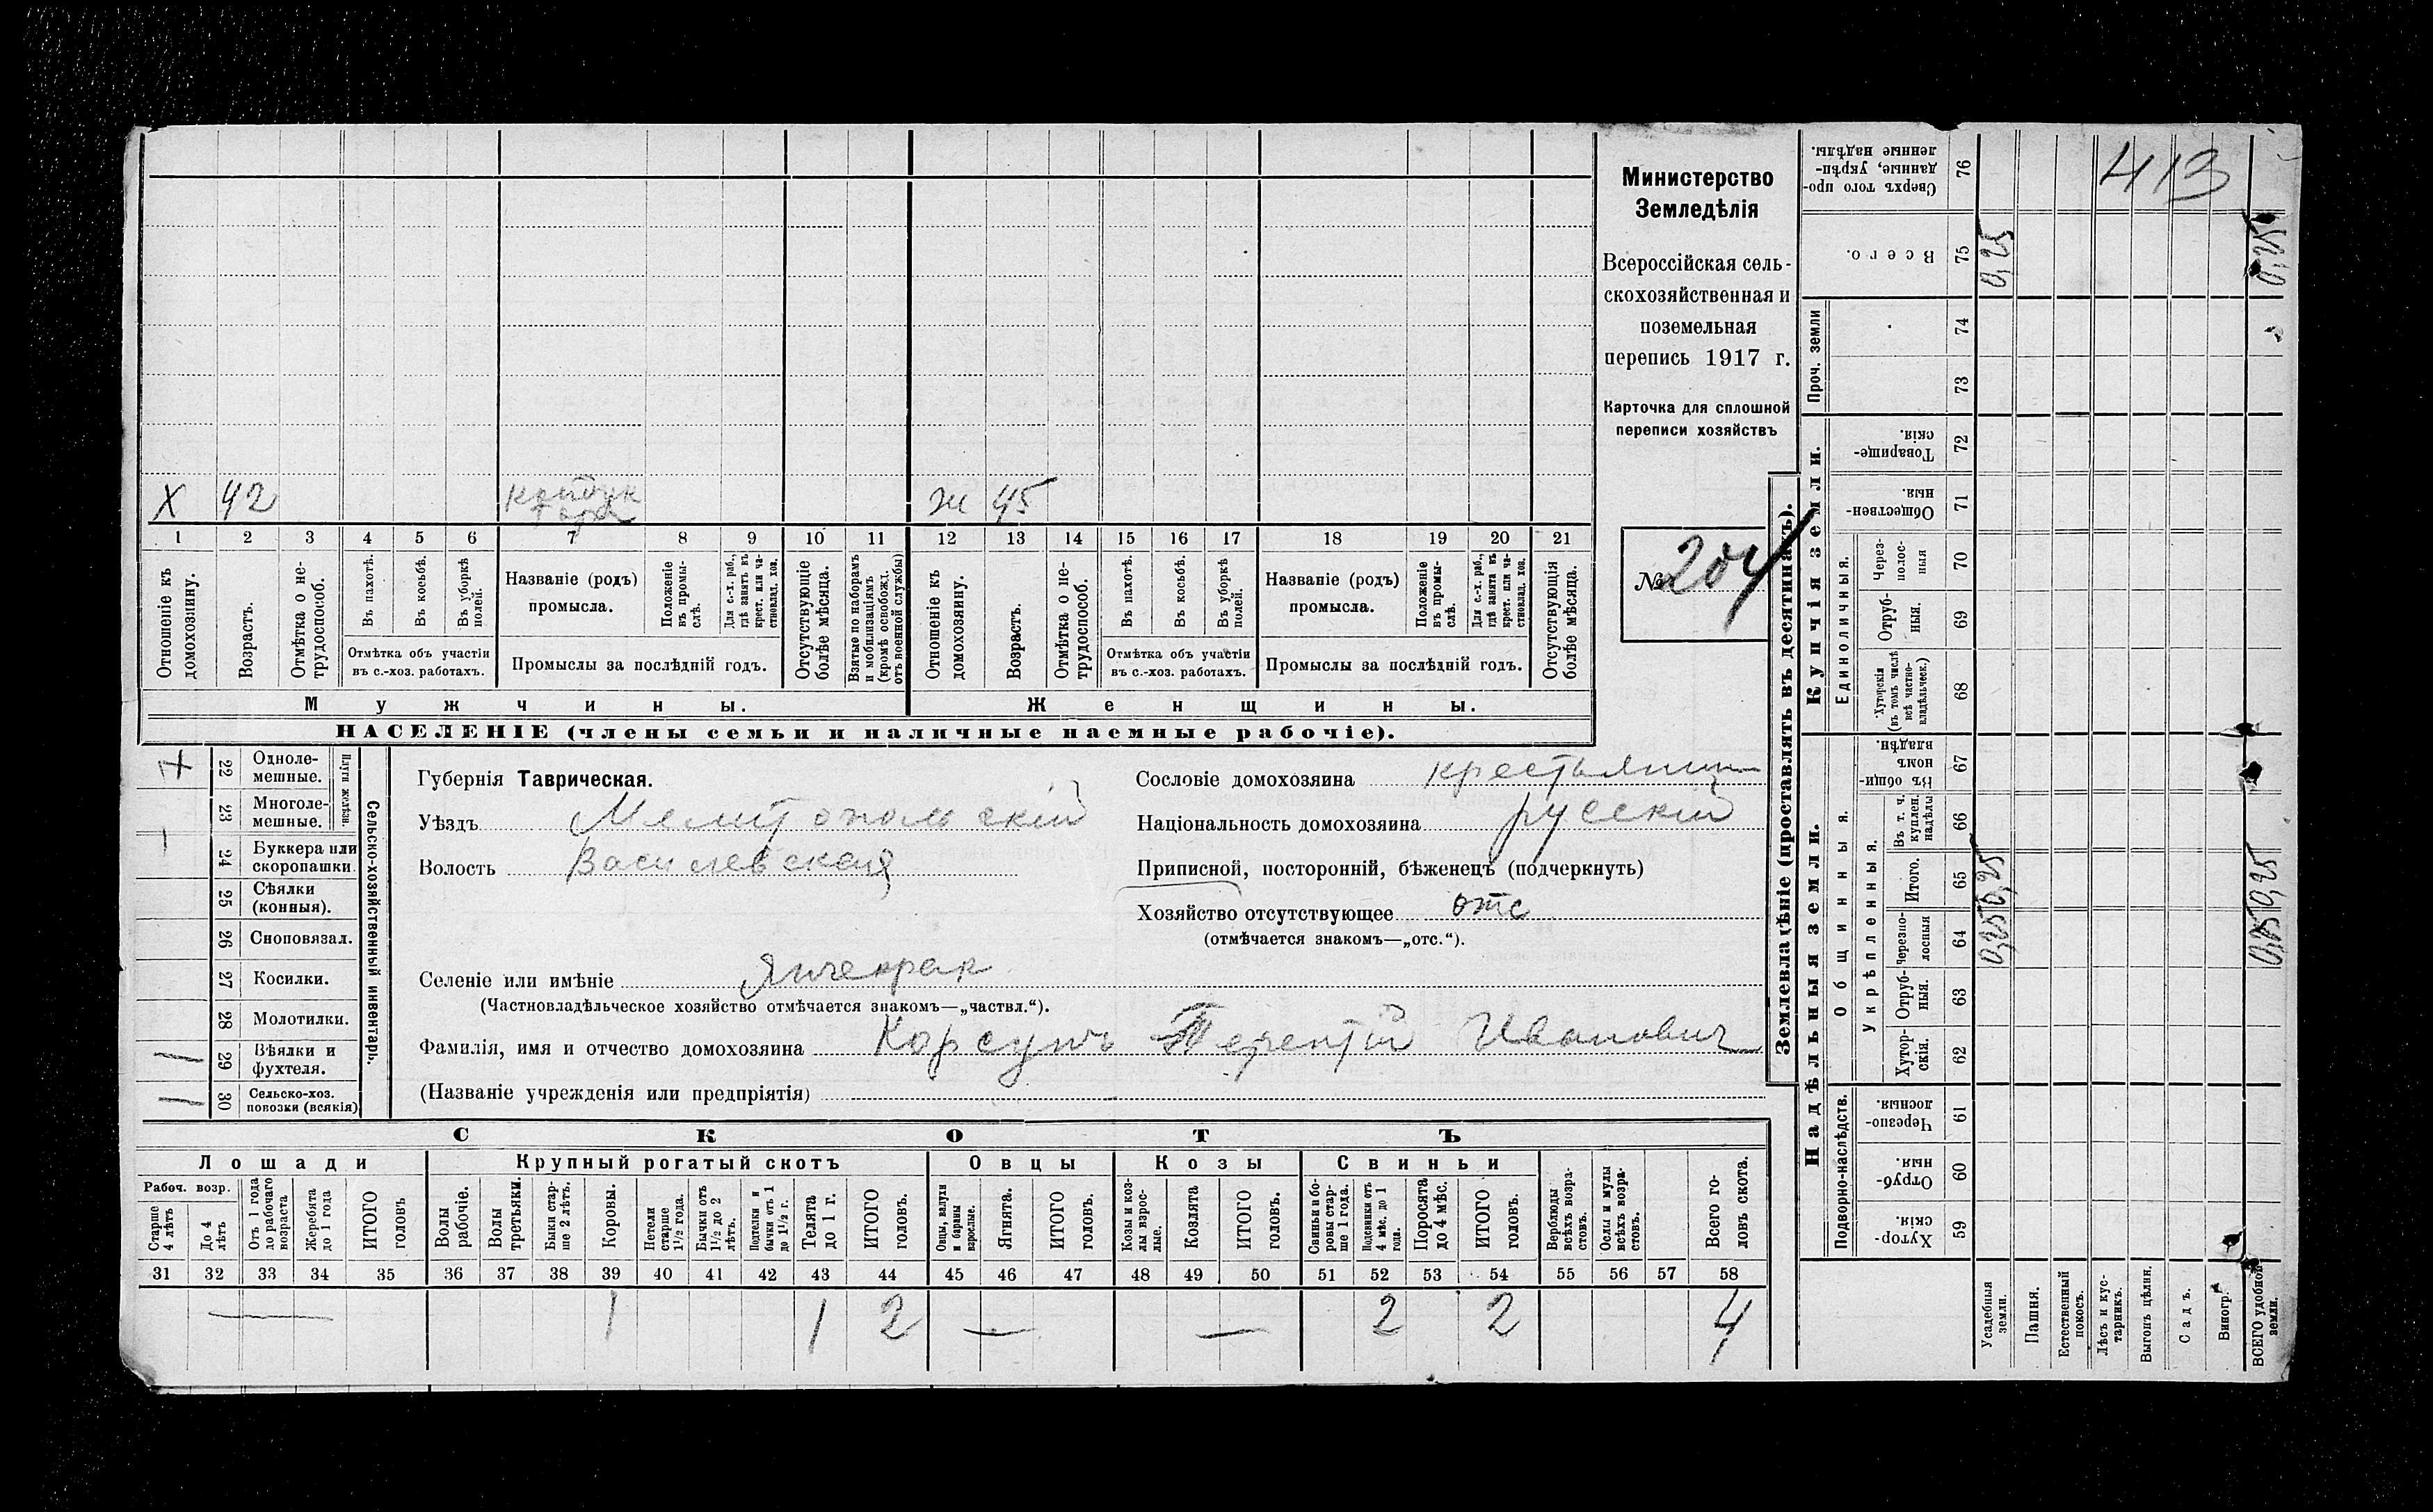 Министерство
Земледѣлія
Всероссійская сель-
скохозяйственная и
поземельная
перепись 1917 г.
Карточка для сплошной
переписи хозяйствъ
№ 204
413
Х 42
Ж 45
1 2 3 4 5 6 7 8 9 10 11 12 13 14 15 16 17 18 19 20 21
Отношеніе къ домохозяину.
Возрастъ.
Отмѣтка о не-трудоспособ.
Въ пахотѣ.
Въ косьбѣ.
Въ уборкѣ полей.
Отмѣтка объ участіи
въ с.-хоз. работахъ.
Названіе (родъ)
промысла.
Положеніе въ промы-слѣ.
Для с.-х. раб., гдѣ занятъ въ крест. или ча-стновлад. хоз.
Промыслы за послѣдній годъ.
Отсутствующіе болѣе мѣсяца.
Взятые по наборамъ и мобилизаціямъ (кромѣ освобожд. отъ военной службы)
Отношеніе къ домохозяину.
Возрастъ.
Отмѣтка о не-трудоспособ.
Въ пахотѣ.
Въ косьбѣ.
Въ уборкѣ полей.
Отмѣтка объ участіи
въ с.-хоз. работахъ.
Названіе (родъ)
промысла.
Положеніе въ промы-слѣ.
Для с.-х. раб., гдѣ занята въ крест. или ча-стновлад. хоз.
Промыслы за послѣдній годъ.
Отсутствующія болѣе мѣсяца.
Мужчины.
Женщины.
НАСЕЛЕНІЕ (члены семьи и наличные наемные рабочіе).
Сельско-хозяйственный инвентарь.
Плуги желѣзн.
22 Одноле-мешные.
23 Многоле-мешные.
24 Буккера или скоропашки.
25 Сѣялки (конныя).
26 Сноповязал.
27 Косилки.
28 Молотилки.
1 29 Вѣялки и фухтеля.
1 30 Сельско-хоз. повозки (всякія)
Губернія Таврическая.
Уѣздъ Мелитопольскій
Волость Василевская
Сословіе домохозяина крестьянин
Національность домохозяина русскій
Приписной, посторонній, бѣженецъ (подчеркнуть)
Хозяйство отсутствующее отс
(отмѣчается знакомъ—„отс.“).
Селеніе или имѣніе Янчекрак
(Частновладѣльческое хозяйство отмѣчается знакомъ—„частвл.“).
Фамилія, имя и отчество домохозяина Корсунъ Терентій Иванович
(Названіе учрежденія или предпріятія)
СКОТЪ
Лошади
Крупный рогатый скотъ
Овцы
Козы
Свиньи
Рабоч. возр.
Старше 4 лѣтъ
До 4 лѣтъ
Отъ 1 года до рабочаго возраста
Жеребята до 1 года
ИТОГО головъ
Волы рабочіе.
Волы третьяки.
Быки стар-ше 2 лѣтъ.
Коровы.
Нетели старше 1 1/2 года.
Бычки отъ 1 1/2 до 2 лѣтъ.
Подтелки и бычки отъ 1 до 1 1/2 г.
Телята до 1 г.
ИТОГО головъ.
Овцы, валухи и бараны взрослые.
Ягнята.
ИТОГО головъ.
Козы и коз-лы взрос-лые.
Козлята
ИТОГО головъ.
Свиньи и бо-ровы стар-ше 1 года.
Подсвинки отъ 4 мѣс. до 1 года.
Поросята до 4 мѣс.
ИТОГО головъ.
Верблюды всѣхъ возра-стовъ.
Ослы и мулы всѣхъ возра-стовъ.
Всего го-ловъ скота.
31 32 33 34 35 36 37 38 39 40 41 42 43 44 45 46 47 48 49 50 51 52 53 54 55 56 57 58
— 1 1 2 — — 2 2 4
Землевладѣніе (проставлять въ десятинахъ).
Надѣльныя земли.
Купчія земли.
Проч. земли
Подворно-наслѣдств.
Общинныя.
Укрѣпленныя.
Единоличныя.
59 Хутор-скія.
60 Отруб-ныя.
61 Черезпо-лосныя.
62 Хутор-скія.
63 Отруб-ныя.
64 Черезпо-лосныя
65 Итого.
66 Въ т. ч. куплен. надѣлы
67 Въ общин-номъ владѣн.
68 Хуторскія (въ томъ числѣ всѣ частно-владѣльческ.)
69 Отруб-ныя.
70 Через-полос-ныя
71 Обществен-ныя.
72 Товарище-скія.
73
74
75 Всего.
76 Сверхъ того про-данные, укрѣп-ленные надѣлы.
Усадебныя земли. 0,25 0,25 0,25
Пашня.
Естественный покосъ.
Лѣсъ и кус-тарникъ.
Выгонъ цѣлин.
Садъ.
Виногр.
ВСЕГО удобной земли. 0,25 0,25 0,25